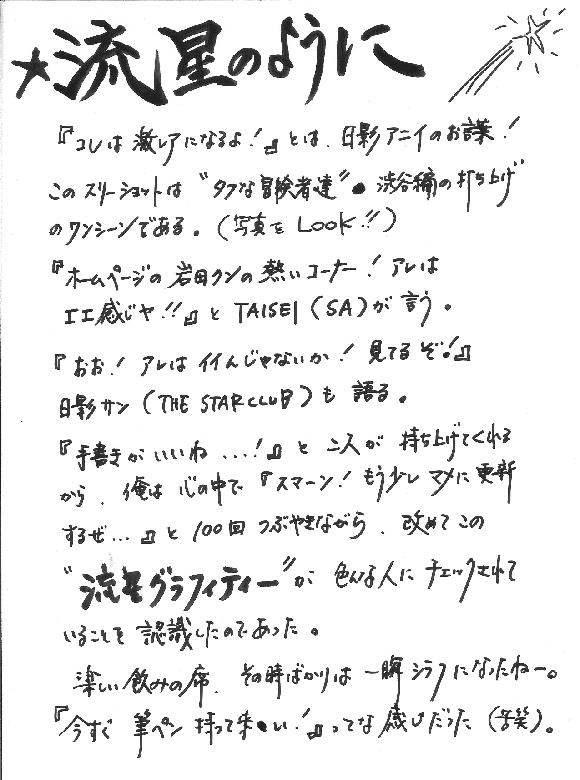 ★流星のように
『コレは激レアになるよ!』とは、日影アニイのお言葉!
このスリーショットは“タフな冒険者達”● 渋谷編の打ち上げ
のワンシーンである。(写真を LOOK!!)
『ホームページの岩田クンの熱いコーナー! アレは
エエ感じヤ!!』と TAISEI (SA)が言う。
『おお! アレはイイんじゃないか! 見てるぞ!』
日影サン (THE STAR CLUB) も語る。
『手書きがいいね…!』と二人が持ち上げてくれる
から、俺は心の中で『スマーン! もう少しマメに更新
するぜ…』と100回つぶやきながら、改めてこの
“流星グラフィティー”が色んな人にチェックされて
いることを認識したのであった。
楽しい飲みの席、その時ばかりは一瞬シラフになったねー。
『今すぐ筆ペン持って来●い!』ってな感じだった(苦笑)。